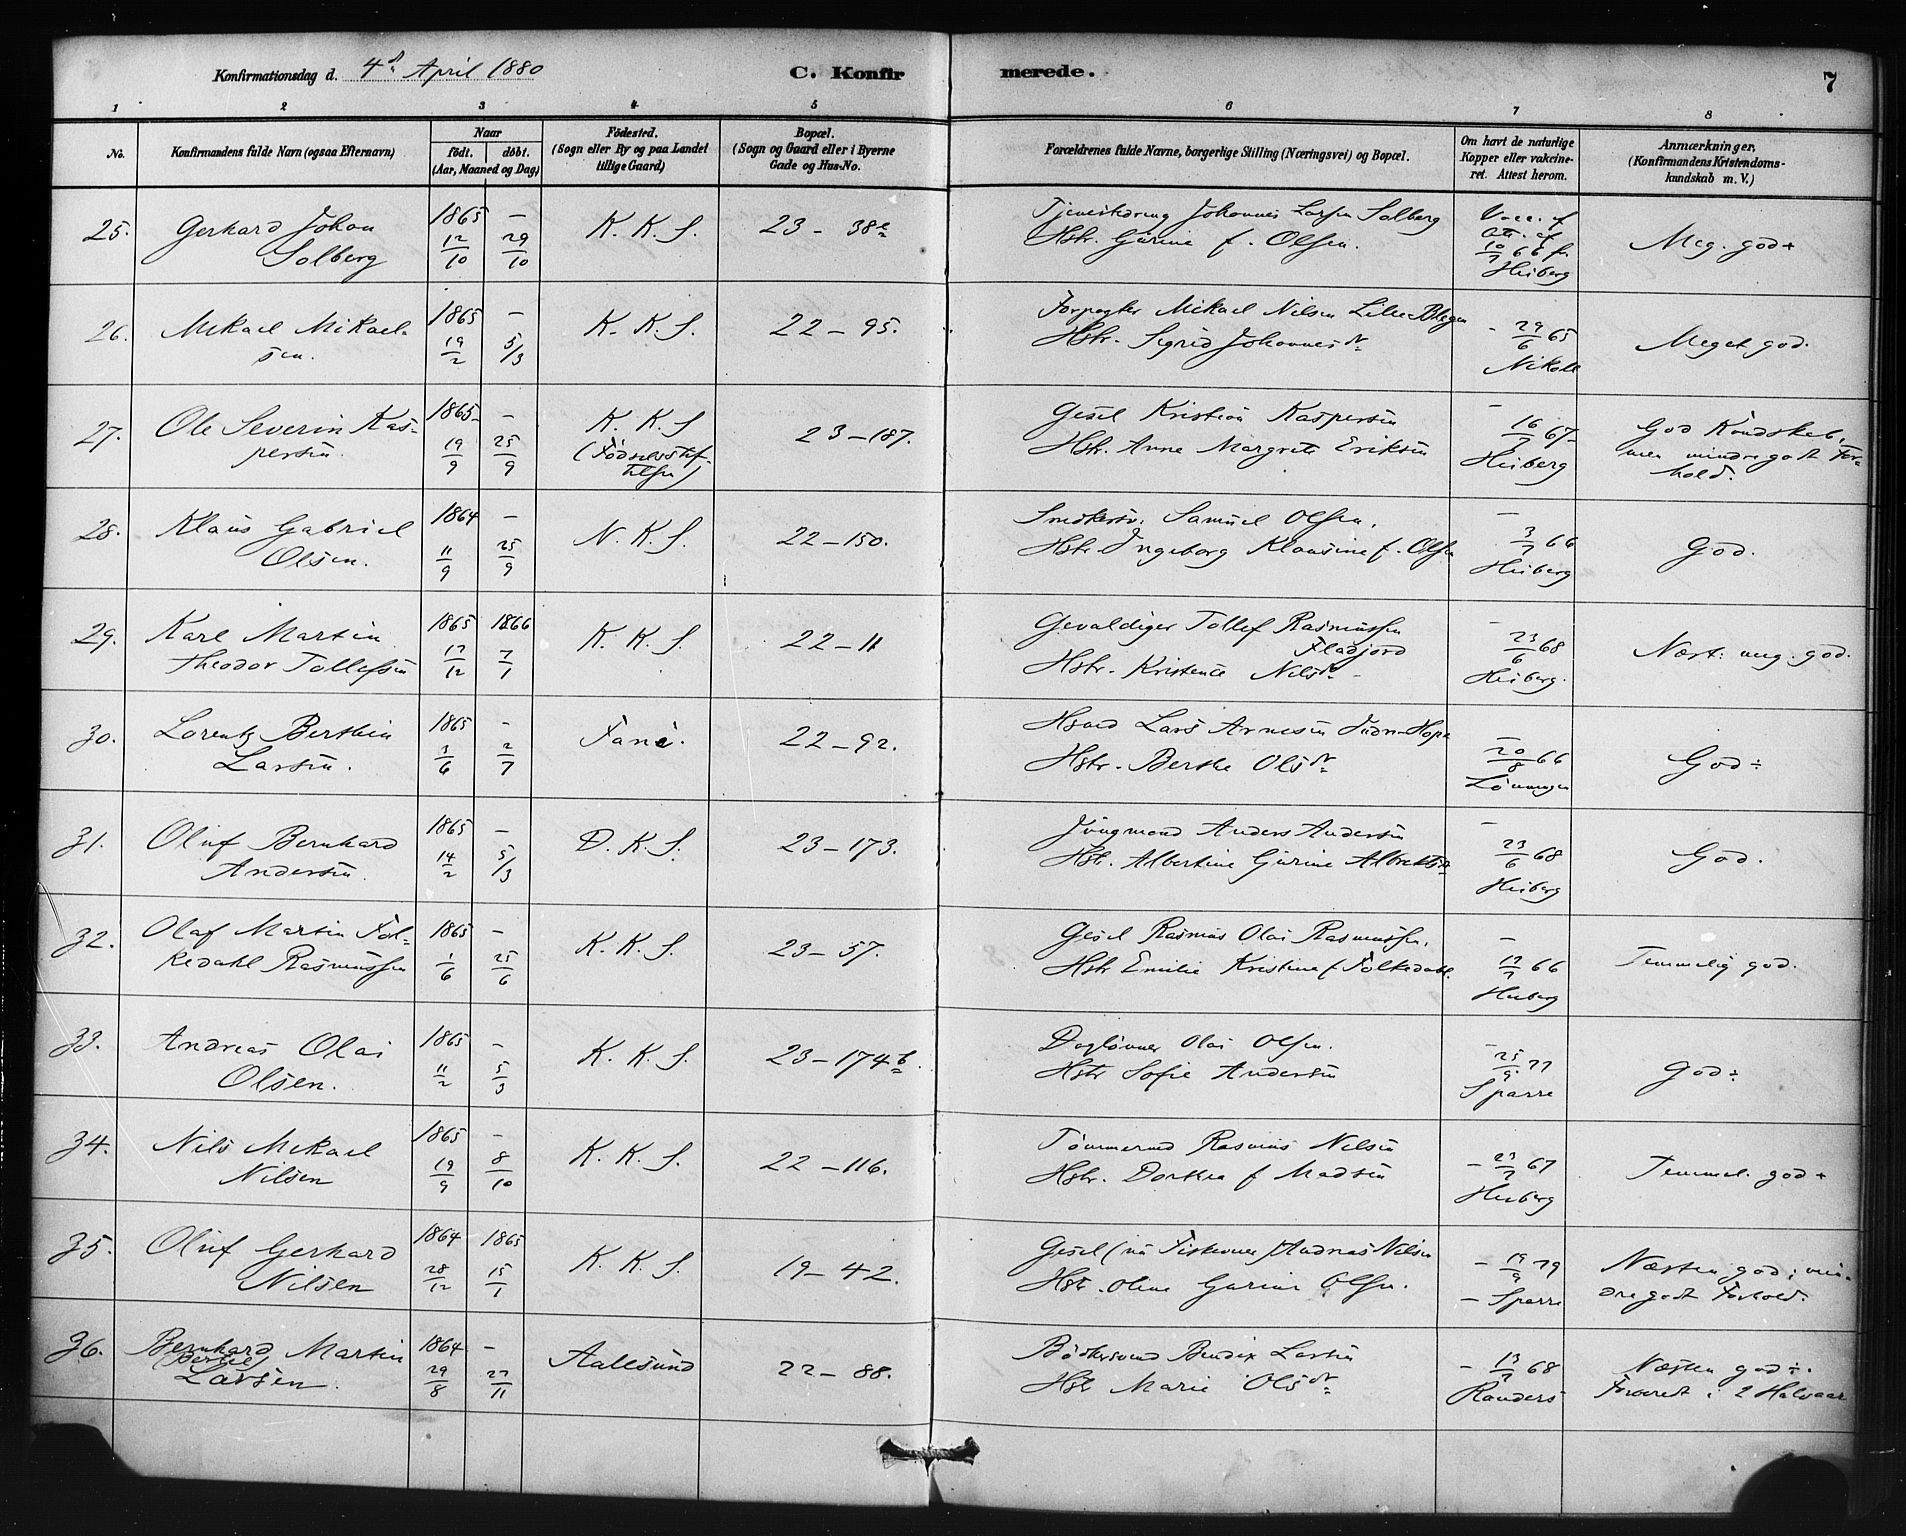 Konfirmationsdag d. 4de April 1880
C. Konfirmerede.
7
1 2 3 4 5 6 7 8
No.
Konfirmandens fulde Navn (ogsaa Efternavn)
Naar
født. døbt.
(Aar, Maaned og Dag)
Fødested.
(Sogn eller By og paa Landet
tillige Gaard)
Bopæl.
(Sogn og Gaard eller i Byerne
Gade og Hus-No.
Forældrenes fulde Navne, borgerlige Stilling (Næringsvei) og Bopæl.
Om havt de naturlige
Kopper eller vakcine-
ret. Attest herom.
Anmærkninger,
(Konfirmandens Kristendoms-
kundskab m. V.)
25. Gerhard Johan
Solberg
1865 12/10
— 29/10
K. K. S.
23 - 38e
Johannes Larsen Solberg
Hstr. Gurine f. Olsen.
Vacc. af
Att. af
10/7 66 fr.
Heiberg
Meg. god +
26. Mikael Mikael-
sen.
1865 19/2
— 5/3
K. K. S.
22 - 95.
Forpagter Mikael Nilsen Lille Blegen
Hstr. Sigrid Johannesdr
- 29/6 65
Meget god.
27. Ole Severin Kas-
persen.
1865 19/9
— 25/9
K. K. S
(Fødselsstif-
telsen)
23 - 187.
Gesel Kristian Kaspersen
Hstr. Anne Margrete Eriksen
— 16/7 67
Heiberg
God Kundskab,
men mindre godt For-
hold.
28. Klaus Gabriel
Olsen.
1864 11/9
— 25/9
N. K. S.
22 - 150.
Snedkersv. Samuel Olsen.
Hstr. Ingeborg Klausine f. Olsen
— 3/7 66
Heiberg
God.
29. Karl Martin
Theodor Tollefsen
1865 17/12
1866 7/1
K. K. S.
22 - 11
Gevaldiger Tollef Rasmussen
Fladjord
Hstr. Kristence Nilsdr
— 23/6 68
Heiberg.
Næst. meg. god.
30. Lorentz Berthin
Larsen.
1865 3/6
— 2/7
Fane.
22 - 92.
Hsmd Lars Arnesen Indre-Hope
Hstr. Berthe Olsdr
— 20/8 66
Lönningen
God ÷
31. Oluf Bernhard
Andersen.
1865 14/2
— 5/3
D. K. S.
23 - 173.
Jungmand Anders Andersen
Hstr. Albertine Gurine Albrektsdr
— 23/6 68
Heiberg
God.
32. Olaf Martin Fol-
kedahl Rasmussen
1865 1/6
— 25/6
K. K. S.
23 - 57.
Gesel Rasmus Olai Rasmussen.
Hstr Emilie Kristine f. Folkedahl.
— 17/7 66
Heiberg
Temmelig god.
33. Andreas Olai
Olsen.
1865 11/2
— 5/3
K. K. S.
23 - 174b.
Daglønner Olai Olsen.
Hstr Sofie Andersen
— 25/9 77
Sparre
God ÷
34. Nils Mikael
Nilsen
1865 19/9
— 8/10
K. K. S.
22 - 116.
Tømmermd Rasmus Nilsen
Hstr. Dorthea f. Madsen
- 23/7 67
Heiberg
Temmel. god +
35. Oluf Gerhard
Nilsen
1864 28/12
1865 15/1
K. K. S.
19 - 42.
Gesel (nu Fiskeven) Andreas Nilsen
Hstr. Oline Gurine Olsen.
- 19/9 79
- Sparre
Næsten god; min-
dre godt Forhold.
36. Bernhard Martin
(Bertel)
Larsen.
1864 29/8
— 27/11
Aalesund
22 - 88.
Bødkersvend Bendix Larsen
Hstr Marie Olsdr
- 13/7 68
Randers
Næsten god ÷.
Forberedt i 2 Halvaar